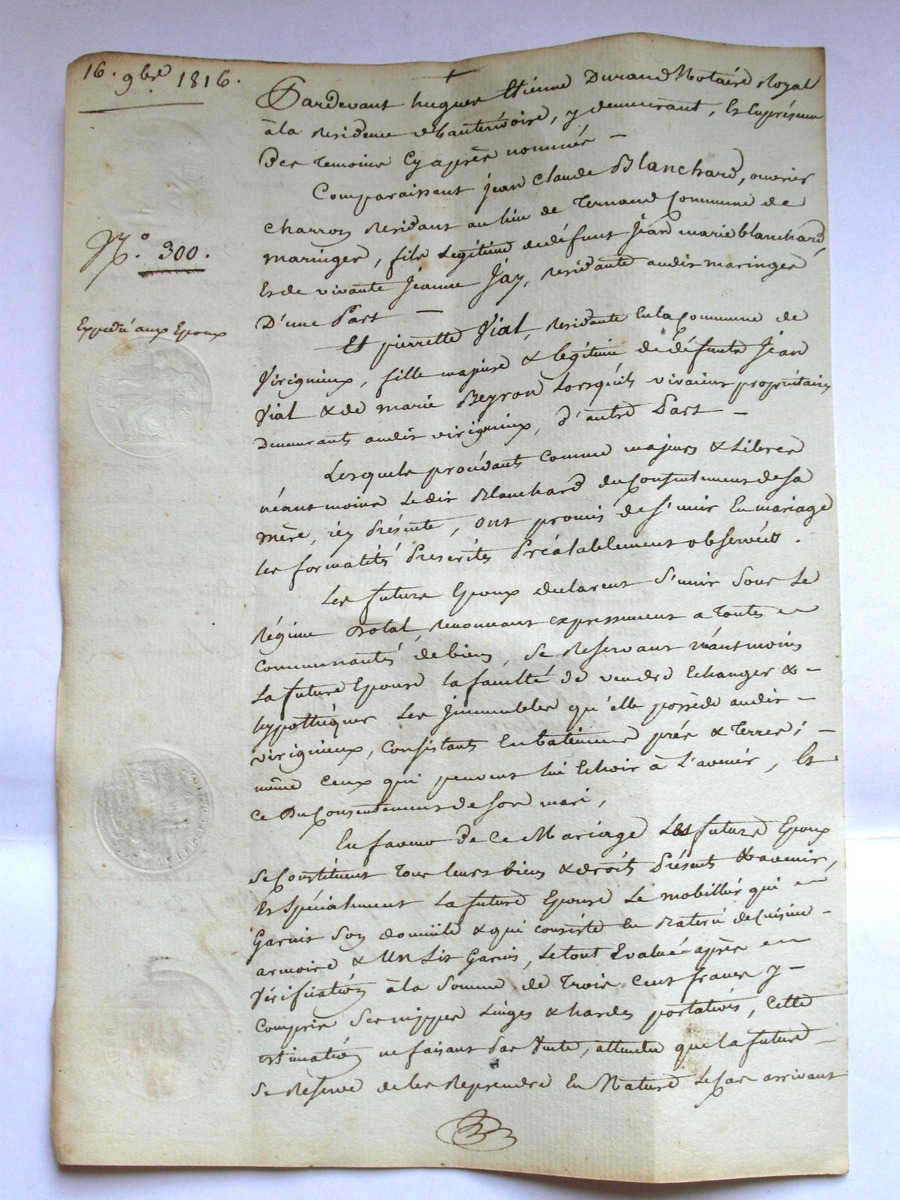 16. 9bre 1816.
N.° 300.
Expedié aux Epoux
Pardevant hugues Etienne Durand Notaire Royal
à la residence d'hauterivoire, y demeurant, Et En présence
Des temoins Cy après nommés —
Comparaissent Jean Claude Blanchard, ouvrier
charron residant au lieu de Ternand Commune de
maringes, fils Légitime de défunt Jean marie blanchard
Et de vivante Jeanne Jay, residante audit maringes
D'une Part —
Et pierrette Vial, residante En la Commune de
Virigneux, fille majeure & légitime de défunts Jean
Vial & de marie Beyron Lorsquils vivaient propriétaires
demeurants audit virigneux, d'autre Part —
Lesquels procédants comme majeurs & Libres
néantmoins Ledit Blanchard du Consentement de sa
mère, icy Présente, ont promis de s'unir En mariage
les formalités Prescrites Préalablement observées.
Les futurs Epoux declarent s'unir sous Le
Régime Dotal, renonçant expressement a Toutes
Communautés de biens, se Reservant néantmoins
La future Epouse la faculté de vendre Echanger &
hypothèquer Les Immeubles qu'elle possède audit
virigneux, Consistants En batiments prés & Terres;
même ceux qui peuvent lui Echoir à L'avenir, Et
ce Du Consentement de son mari,
En faveur de Ce Mariage Les futurs Epoux
se Constituent Tous leurs biens & droits Présents & avenir,
Et spécialement La future Epouse Le mobillier qui
Garnit son domicile & qui consiste En Baterie de Cuisine
armoire & Un Lit Garni, Le tout Evalué après
Vérification à la Somme de Trois Cent francs y
Compris ses nippes Linges & hardes portatives, cette
estimation ne faisant Pas Vente, attendu que La future
se Reserve de les Reprendre En Nature Le Cas arrivant